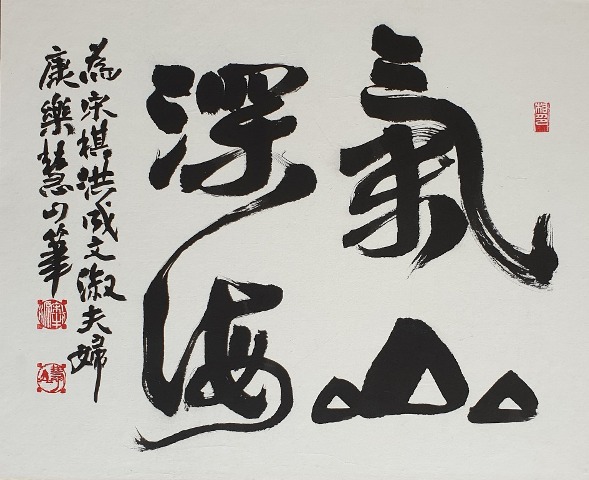 氣山
深海
為宋棋洪成文淑夫婦
康樂慧山筆